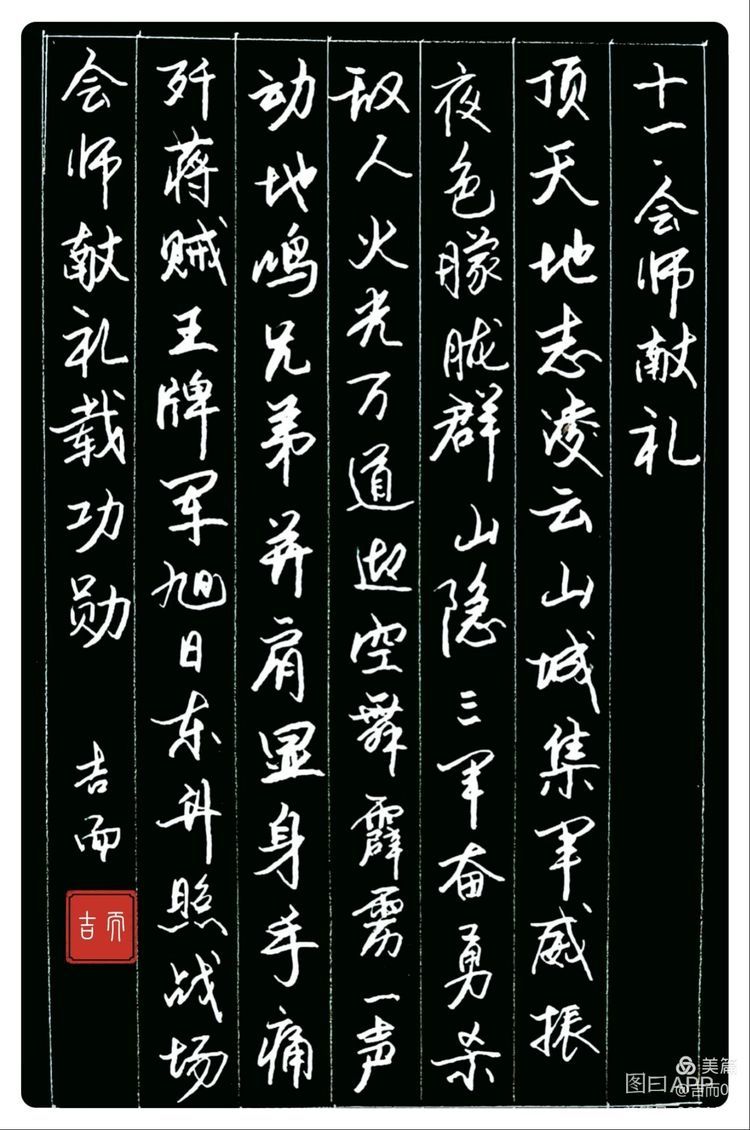 十一、会师献礼
顶天地志凌云山城集军威振
夜色朦胧群山隐三军奋勇杀
敌人火光万道空舞霹雳一声
动地鸣兄弟并肩显身手痛
歼蒋贼王牌军旭日东升照战场
会师献礼载功勋 吉而
吉而
美篇
图曰APP
@吉而0